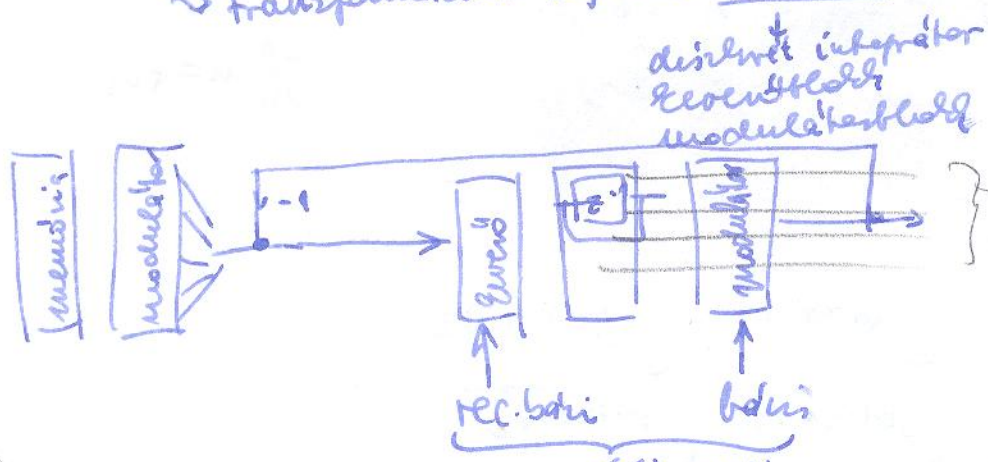 diszkrét integrátor
keverőblokk
modulátorblokk
memória
modulátor
-1
keverő
z⁻¹
modulátor
rec. bázis
bázis